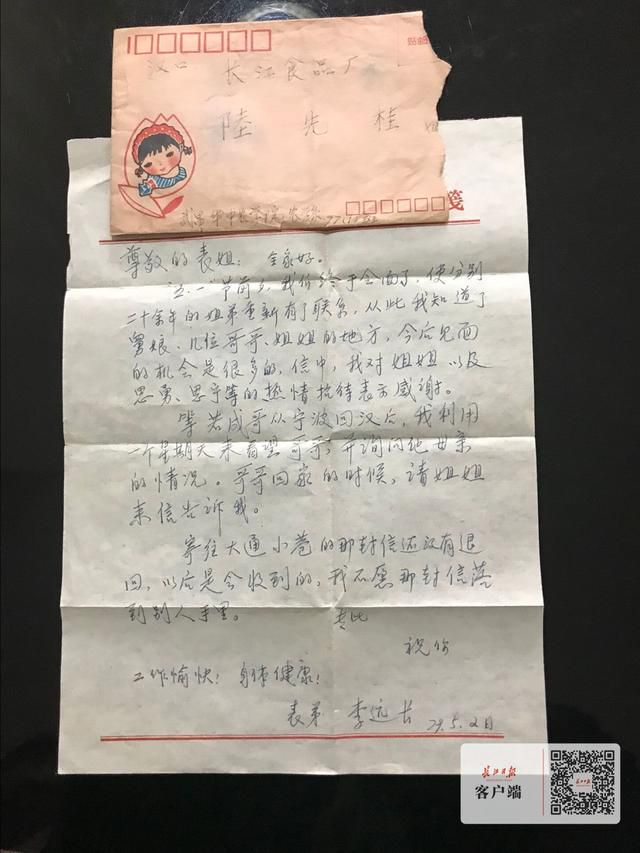 贴邮
汉口 长江食品厂
陸 先 桂
武昌华中农学院农经
笺
尊敬的表姐： 全家好。
“五·一”节前夕，我们终于会面了，使分别
二十余年的姐弟重新有了联系，从此我知道了
舅娘、几位哥哥、姐姐的地方，今后见面
的机会是很多的，信中，我对姐姐以及
思勇、思宁等的热情招待表示感谢。
等若成哥从宁波回汉后，我利用
一个星期天来看望哥哥，并询问他母亲
的情况。哥哥回家的时候，请姐姐
来信告诉我。
寄往大通小巷的那封信还没有退
回，以后是会收到的，我不愿那封信落
到别人手里。 专此
祝你
工作愉快！身体健康！
表弟 李远长 79.5.2日
长江日报
客户端